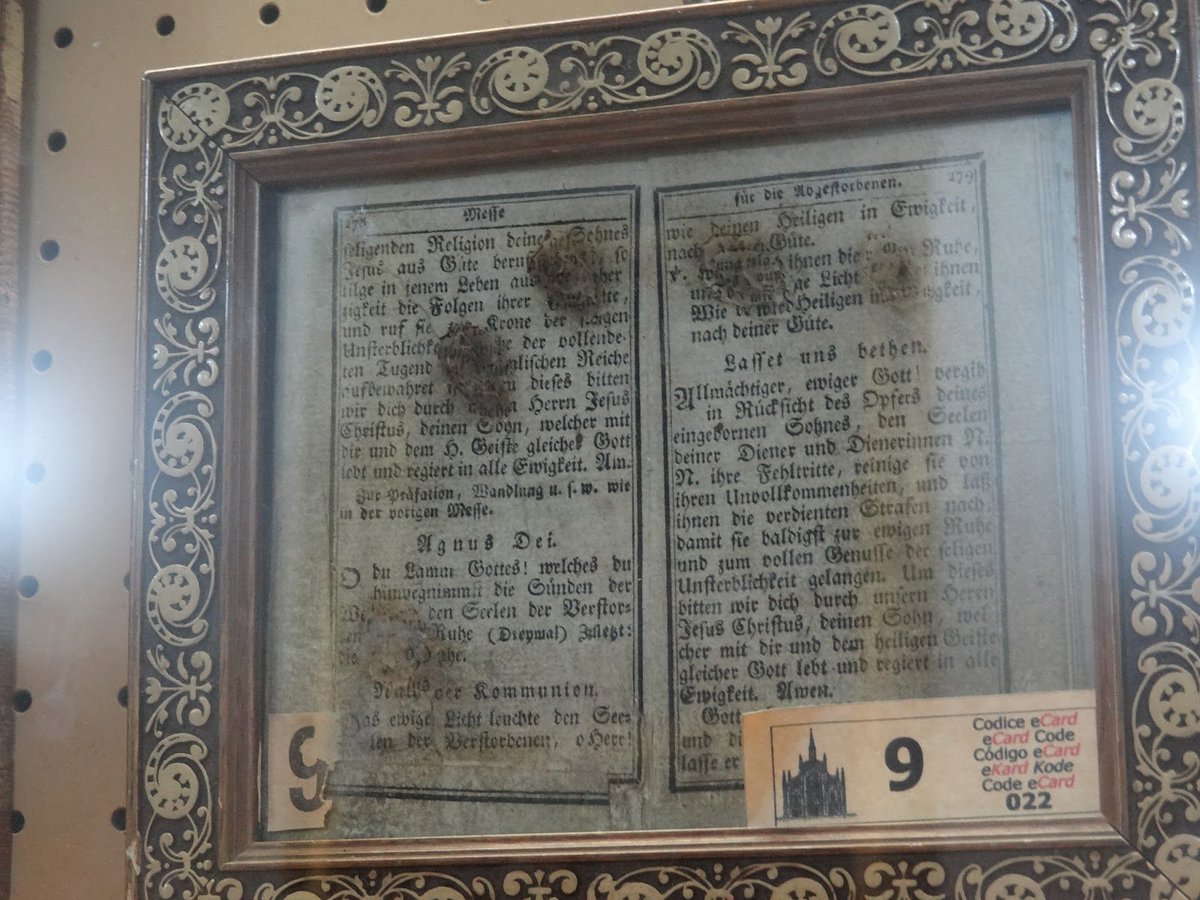 278
Messe
seligenden Religion deines Sohnes
Jesus aus Güte so
tilge in jenem Leben aus
zigkeit die Folgen ihrer
und ruf sie Krone der
der vollende-
ten Tugend Reiche
aufbewahret dieses bitten
wir dich durch Herrn Jesus
Christus, deinen Sohn, welcher mit
dir und dem H. Geiste gleicher Gott
lebt und regiert in alle Ewigkeit. Am.
Zur Präfation, Wandlung u. s. w. wie
in der vorigen Messe.
Agnus Dei.
O du Lamm Gottes! welches du
hinwegnimmst die Sünden der
den Seelen der Verstor=
Ruhe (Dreymal) Zuletzt:
die
Nach der Kommunion.
Das ewige Licht leuchte den See=
len der Verstorbenen, o Herr!
für die Abgestorbenen. 279
wie deinen Heiligen in Ewigkeit,
nach Güte.
V. ihnen die Ruhe,
und Licht ihnen
Wie Heiligen
nach deiner Güte.
Lasset uns bethen.
Allmächtiger, ewiger Gott! vergib
in Rücksicht des Opfers deines
eingebornen Sohnes, den Seelen
deiner Diener und Dienerinnen N.
N. ihre Fehltritte, reinige sie von
ihren Unvollkommenheiten, und laß
ihnen die verdienten Strafen nach,
damit sie baldigst zur ewigen Ruhe
und zum vollen Genusse der seligen
Unsterblichkeit gelangen. Um dieses
bitten wir dich durch unsern Herrn
Jesus Christus, deinen Sohn, wel
cher mit dir und dem heiligen Geiste
gleicher Gott lebt und regiert in alle
Ewigkeit. Amen.
Gott
und
lasse er
9
9
Codice eCard
eCard Code
Código eCard
eKard Kode
Code eCard
022